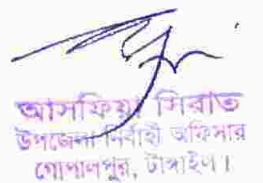 আসফিয়া সিরাত
উপজেলা নির্বাহী অফিসার
গোপালপুর, টাঙ্গাইল।